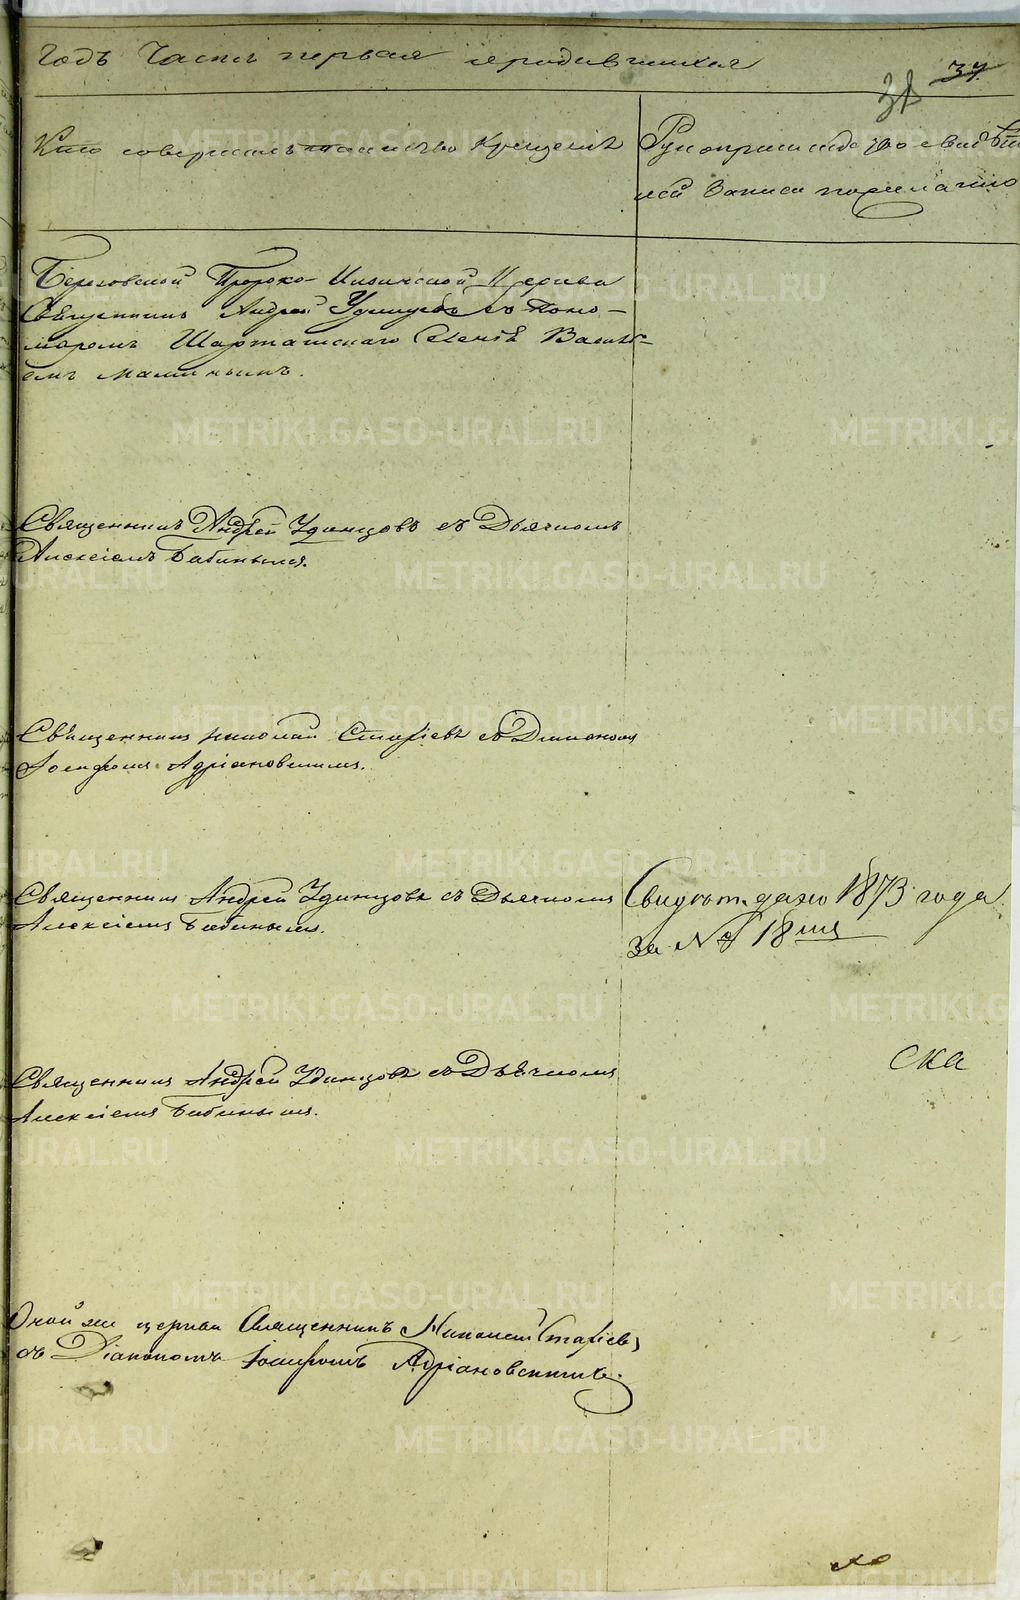 Годъ Часть первая о родившихся
37
Кто совершалъ таинство крещенія
Рукоприкладство свидѣт
лей записи по желанію
Береговской Пророко-Ильинской Церкви
Священникъ Андрей Удинцовъ съ Поно-
маремъ Шарташскаго Василі-
емъ
Священникъ Андрей Удинцовъ съ Дьячкомъ
Алексіемъ Бабинымъ.
Священникъ Николай Стафіевъ съ Діакономъ
Іосифомъ Адріановскимъ.
Священникъ Андрей Удинцовъ съ Дьячкомъ
Алексіемъ Бабинымъ.
Свидѣт. дано 1873 года
за № 18
Священникъ Андрей Удинцовъ съ Дьячкомъ
Алексіемъ Бабинымъ.
ска
Оной же церкви Священникъ Николай Стафіевъ
съ Діакономъ Іосифомъ Адріановскимъ.
METRIKI.GASO-URAL.RU